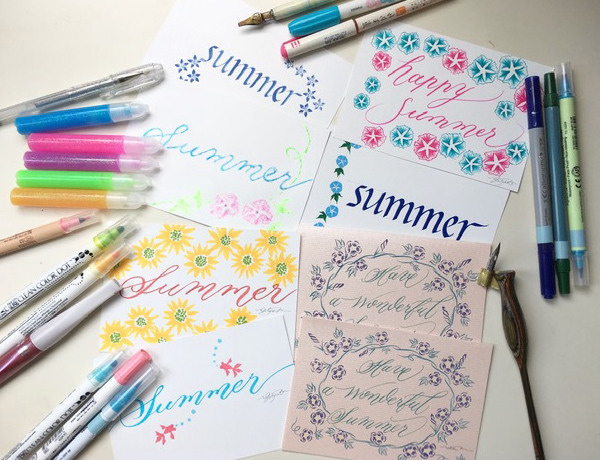 summer
happy
Summer
Summer
summer
Summer
Have
a Wonderful
Summer
Have
a Wonderful
Summer
CLEAN COLOR DOT